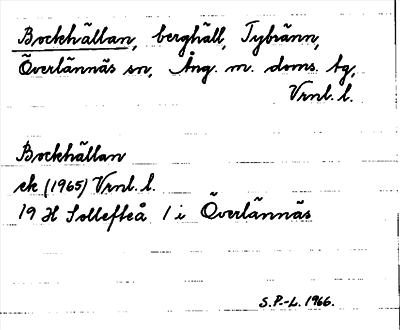 Bockhällan, berghäll, Tybränn,
Överlännäs sn, Ång. m. doms. tg,
Vrnl. l.
Bockhällan
ek (1965) Vrnl. l.
19 H Sollefteå 1 i Överlännäs
S.P.-L. 1966.